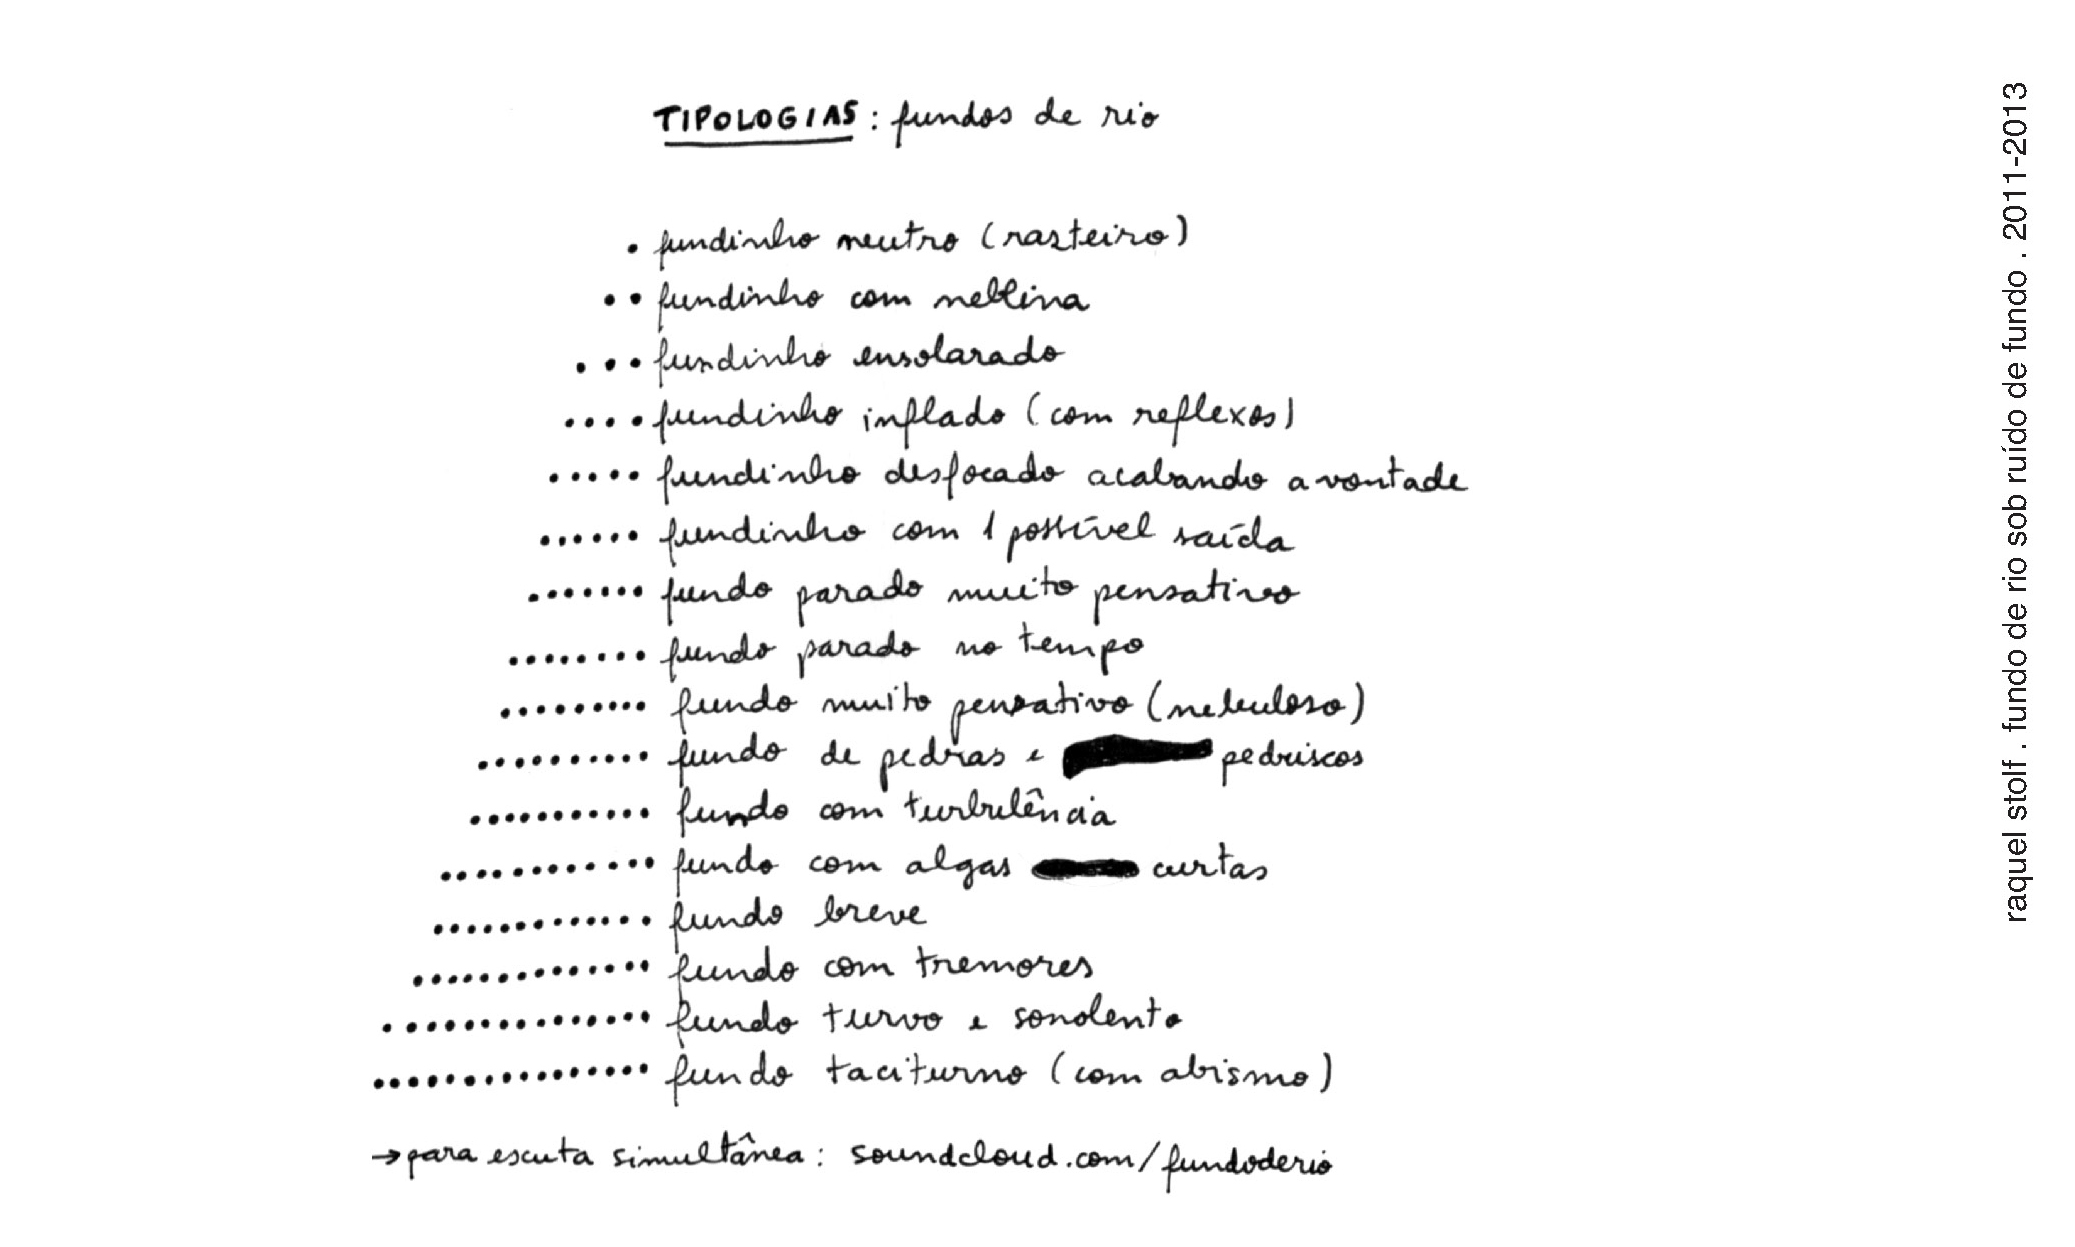 TIPOLOGIAS: fundos de rio
• fundinho neutro (rasteiro)
•• fundinho com neblina
••• fundinho ensolarado
•••• fundinho inflado (com reflexos)
••••• fundinho desfocado acabando a vontade
•••••• fundinho com 1 possível saída
••••••• fundo parado muito pensativo
•••••••• fundo parado no tempo
••••••••• fundo muito pensativo (nebuloso)
•••••••••• fundo de pedras e pedriscos
••••••••••• fundo com turbulência
•••••••••••• fundo com algas curtas
••••••••••••• fundo breve
•••••••••••••• fundo com tremores
••••••••••••••• fundo turvo e sonolento
•••••••••••••••• fundo taciturno (com abismo)
→ para escuta simultânea: soundcloud.com/fundoderio
raquel stolf . fundo de rio sob ruído de fundo . 2011-2013